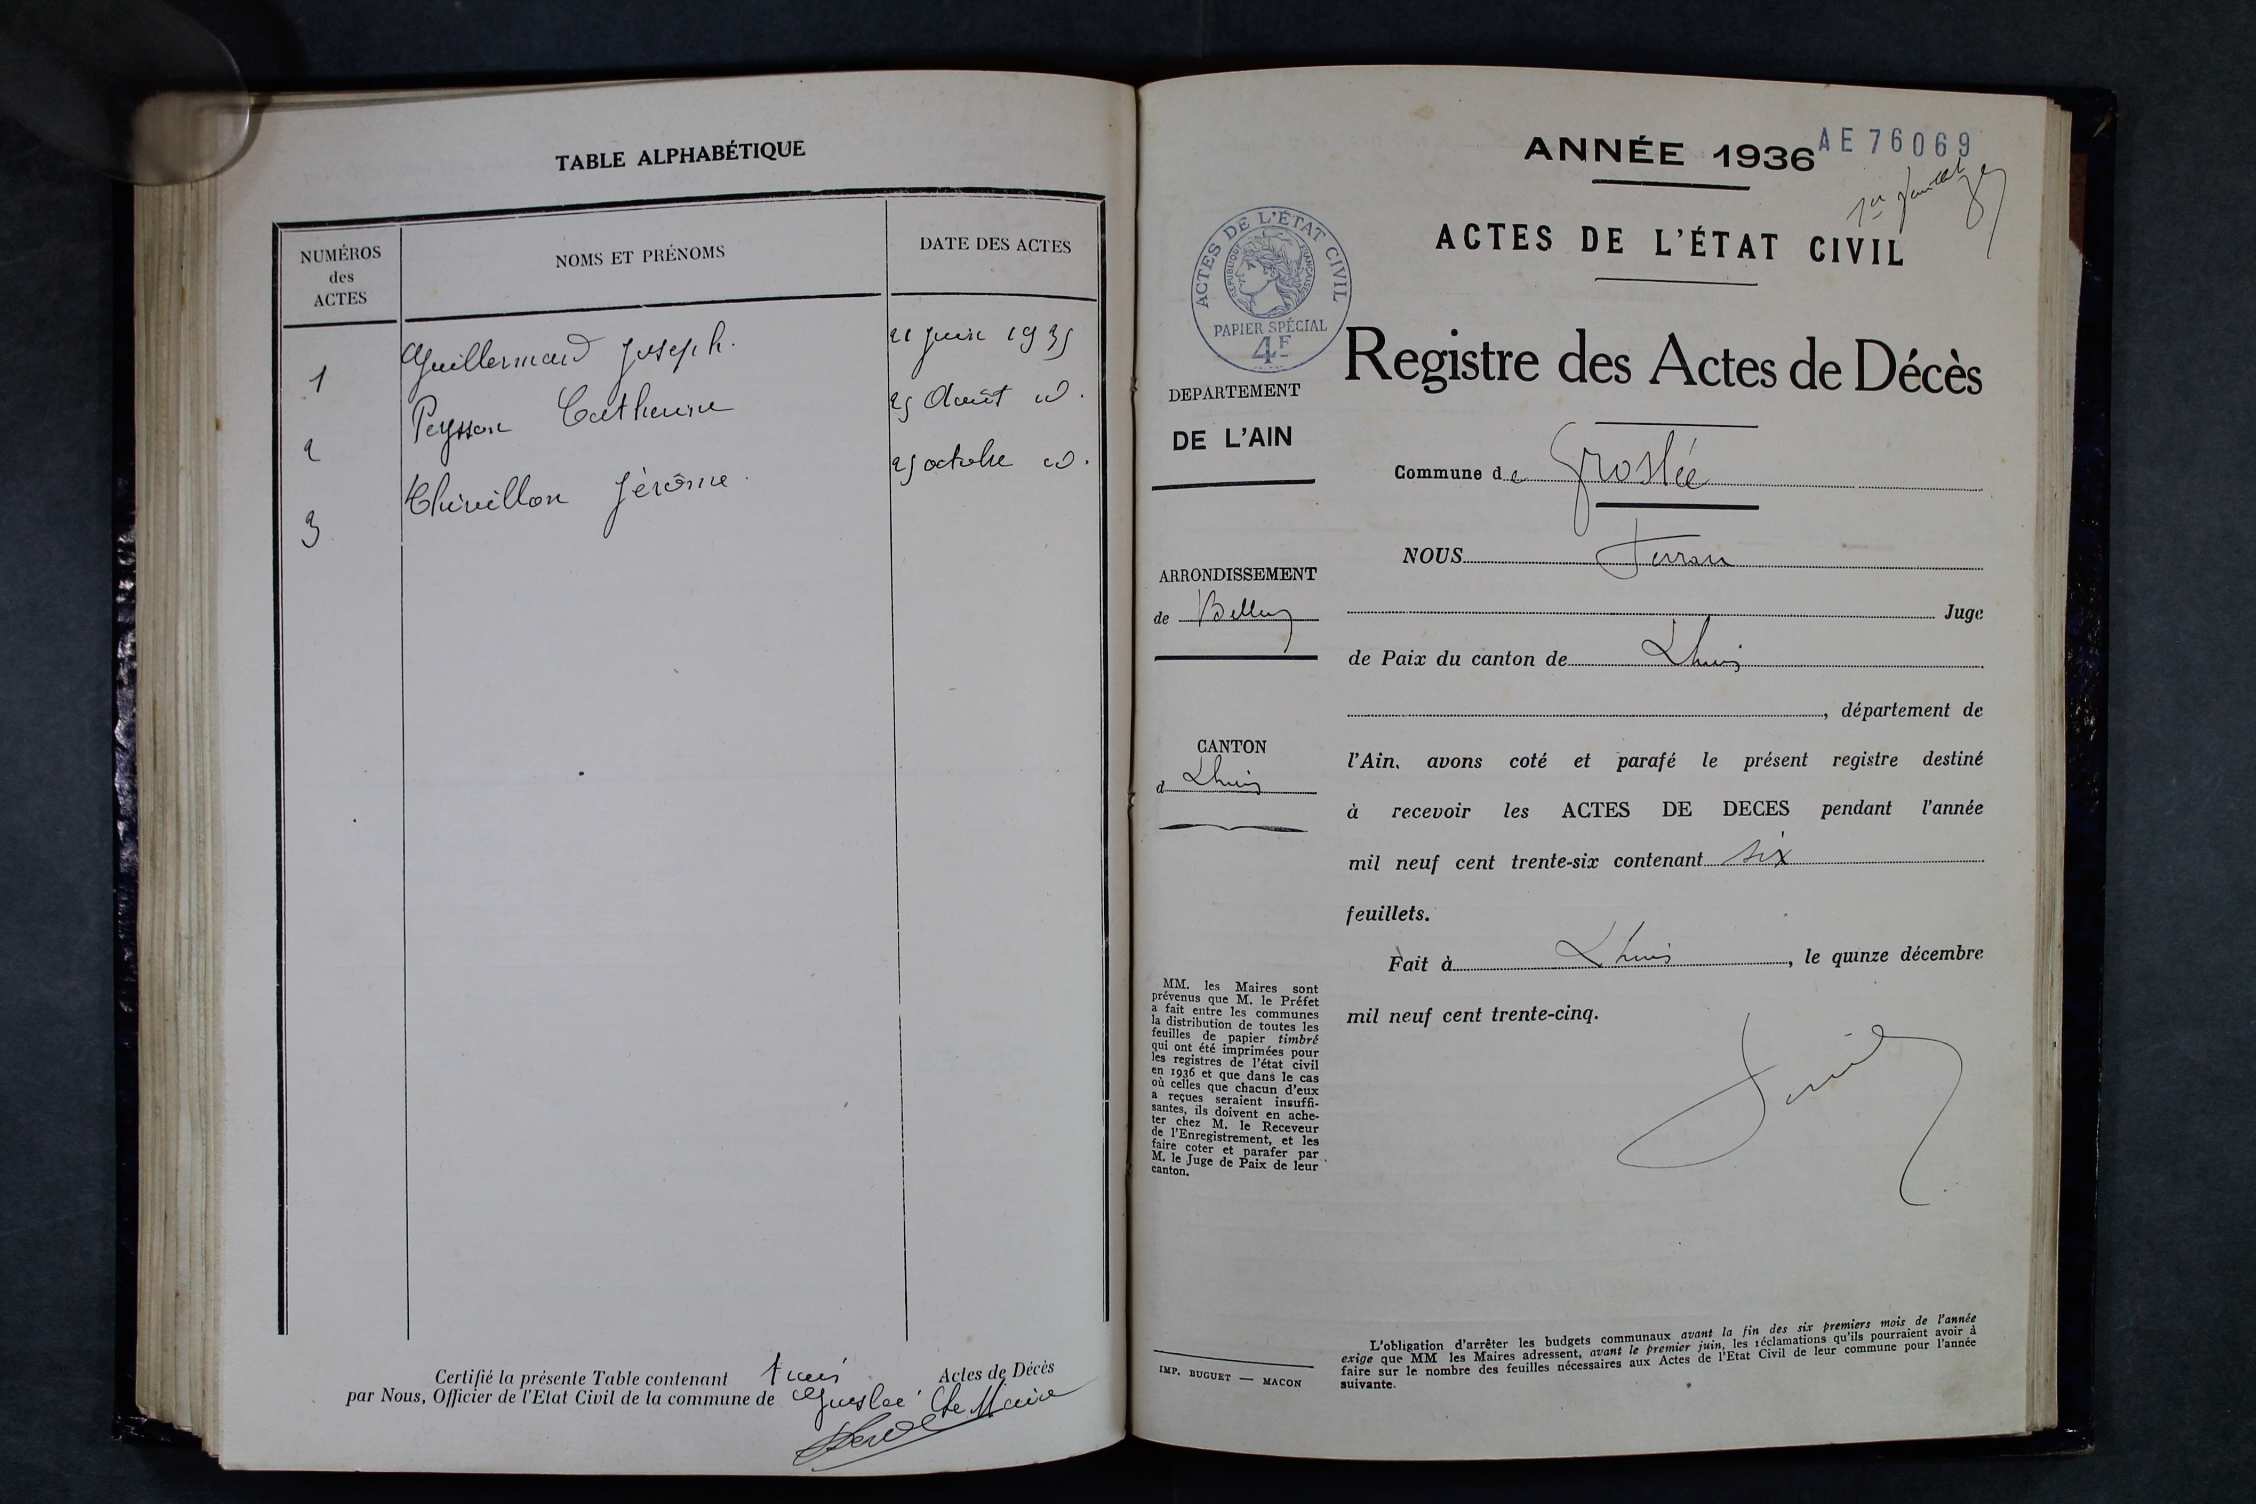 TABLE ALPHABÉTIQUE
NUMÉROS
des
ACTES
NOMS ET PRÉNOMS
DATE DES ACTES
1 Guillermard Joseph. 21 juin 1935
2 Peysson Catherine 25 Août id.
3 Chivillon Jérôme. 25 octobre id.
Certifié la présente Table contenant trois Actes de Décès
par Nous, Officier de l'Etat Civil de la commune de Groslée Le Maire
ANNÉE 1936
AE 76069
1er feuillet
ACTES DE L'ÉTAT CIVIL
ACTES DE L'ÉTAT CIVIL
RÉPUBLIQUE FRANÇAISE
PAPIER SPÉCIAL
4F
Registre des Actes de Décès
DEPARTEMENT
DE L'AIN
Commune de Groslée
ARRONDISSEMENT
de Belley
CANTON
d Lhuis
NOUS
Juge
de Paix du canton de Lhuis
, département de
l'Ain, avons coté et parafé le présent registre destiné
à recevoir les ACTES DE DECES pendant l'année
mil neuf cent trente-six contenant six
feuillets.
Fait à Lhuis, le quinze décembre
mil neuf cent trente-cinq.
MM. les Maires sont
prévenus que M. le Préfet
a fait entre les communes
la distribution de toutes les
feuilles de papier timbré
qui ont été imprimées pour
les registres de l'état civil
en 1936 et que dans le cas
où celles que chacun d'eux
a reçues seraient insuffi-
santes, ils doivent en ache-
ter chez M. le Receveur
de l'Enregistrement, et les
faire coter et parafer par
M. le Juge de Paix de leur
canton.
IMP. BUGUET — MACON
L'obligation d'arrêter les budgets communaux avant la fin des six premiers mois de l'année
exige que MM les Maires adressent, avant le premier juin, les réclamations qu'ils pourraient avoir à
faire sur le nombre des feuilles nécessaires aux Actes de l'Etat Civil de leur commune pour l'année
suivante.